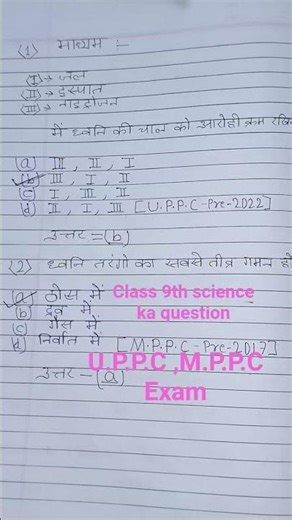 <1> माध्यम :-
<I>→ जल
<II>→ इस्पात
<III>→ नाइट्रोजन
में ध्वनि की चाल को आरोही क्रम
(a) III, II, I
(b) III, I, II
(c) I, III, II
(d) II, I, III [U.P.P.C-Pre-2022]
उत्तर = (b)
<2> ध्वनि तरंगो का सबसे तीव्र गमन
(a) ठोस में
(b) द्रव में
(c) गैस में
(d) निर्वात में [M.P.P.C-Pre-2017]
उत्तर - (a)
Class 9th science
ka question
U.P.P.C ,M.P.P.C
Exam